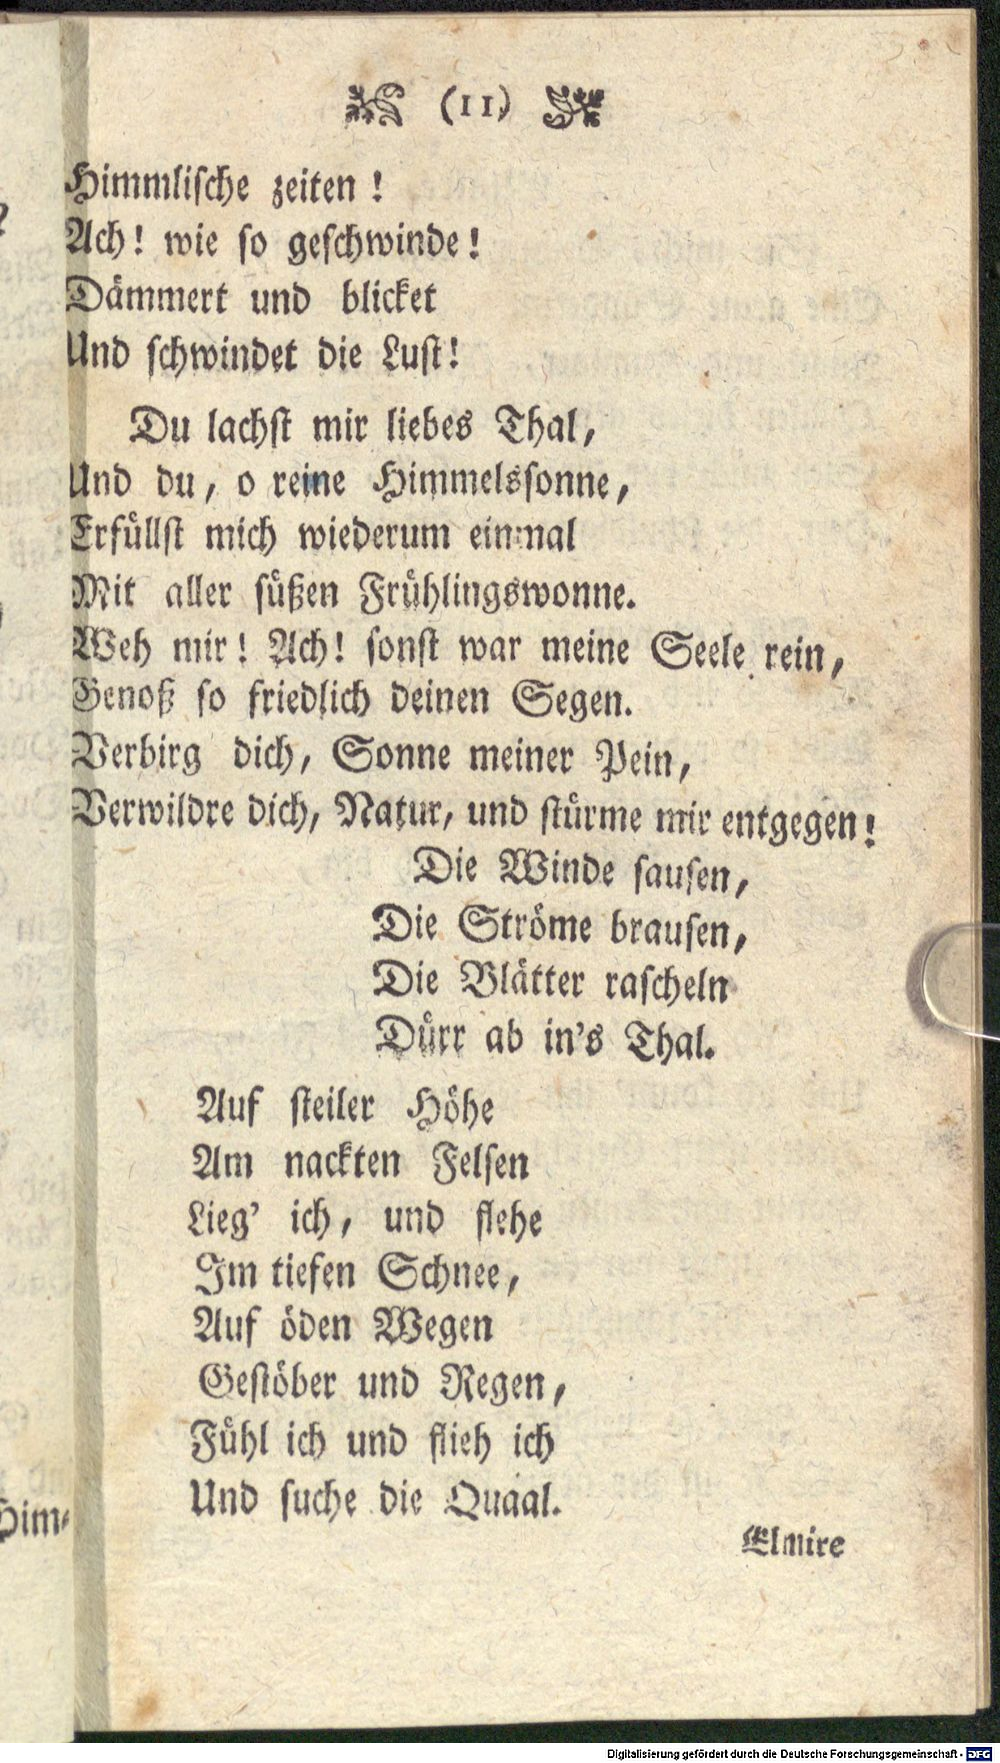 (11)
Himmlische zeiten!
Ach! wie so geschwinde!
Dämmert und blicket
Und schwindet die Lust!
Du lachst mir liebes Thal,
Und du, o reine Himmelssonne,
Erfüllst mich wiederum einmal
Mit aller süßen Frühlingswonne.
Weh mir! Ach! sonst war meine Seele rein,
Genoß so friedlich deinen Segen.
Verbirg dich, Sonne meiner Pein,
Verwildre dich, Natur, und stürme mir entgegen!
Die Winde sausen,
Die Ströme brausen,
Die Blätter rascheln
Dürr ab in's Thal.
Auf steiler Höhe
Am nackten Felsen
Lieg' ich, und flehe
Im tiefen Schnee,
Auf öden Wegen
Gestöber und Regen,
Fühl ich und flieh ich
Und suche die Quaal.
Him-
Elmire
Digitalisierung gefördert durch die Deutsche Forschungsgemeinschaft - DFG